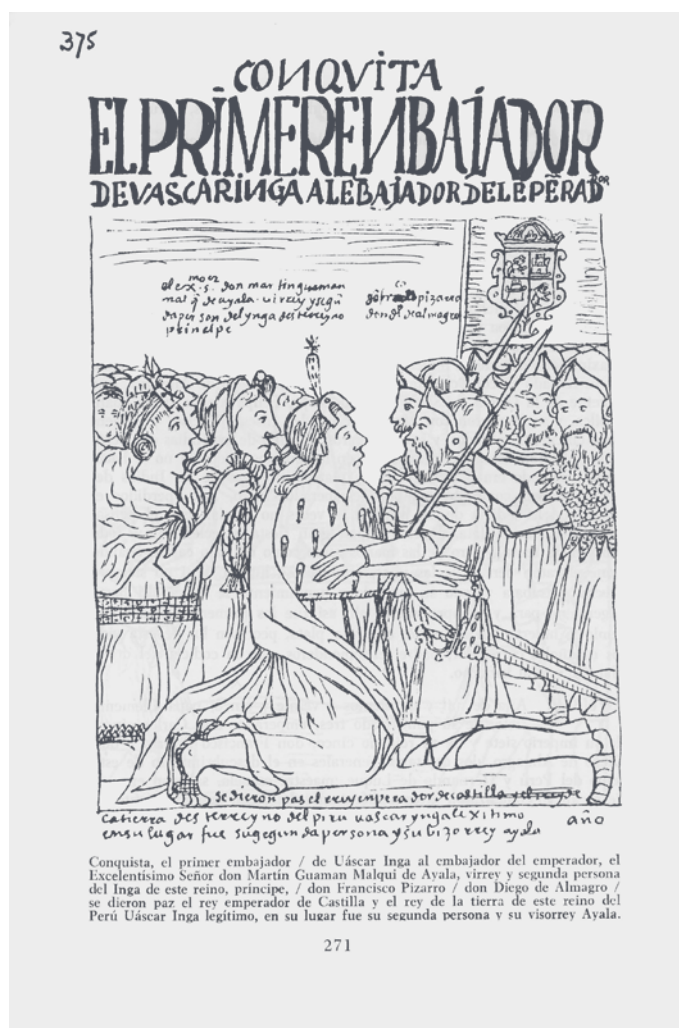 375
CONQVITA
EL PRIMER ENBAJADOR
DE VASCAR INGA AL EBAJADOR DEL EPĒRADOR
el ex.mo s.or don martin guaman
malq̃ de ayala virrey y segū
da person del ynga deste reyno
prinsipe
don fran.co pizarro
don di.o de almagro
se dieron pas el rrey enperador de castilla y el rrey de
la tierra deste rreyno del piru uascar ynga lexitimo
en su lugar fue su segunda persona y su bizorrey ayala
año
Conquista, el primer embajador / de Uáscar Inga al embajador del emperador, el
Excelentísimo Señor don Martín Guaman Malqui de Ayala, virrey y segunda persona
del Inga de este reino, príncipe, / don Francisco Pizarro / don Diego de Almagro /
se dieron paz el rey emperador de Castilla y el rey de la tierra de este reino del
Perú Uáscar Inga legítimo, en su lugar fue su segunda persona y su visorrey Ayala.
271